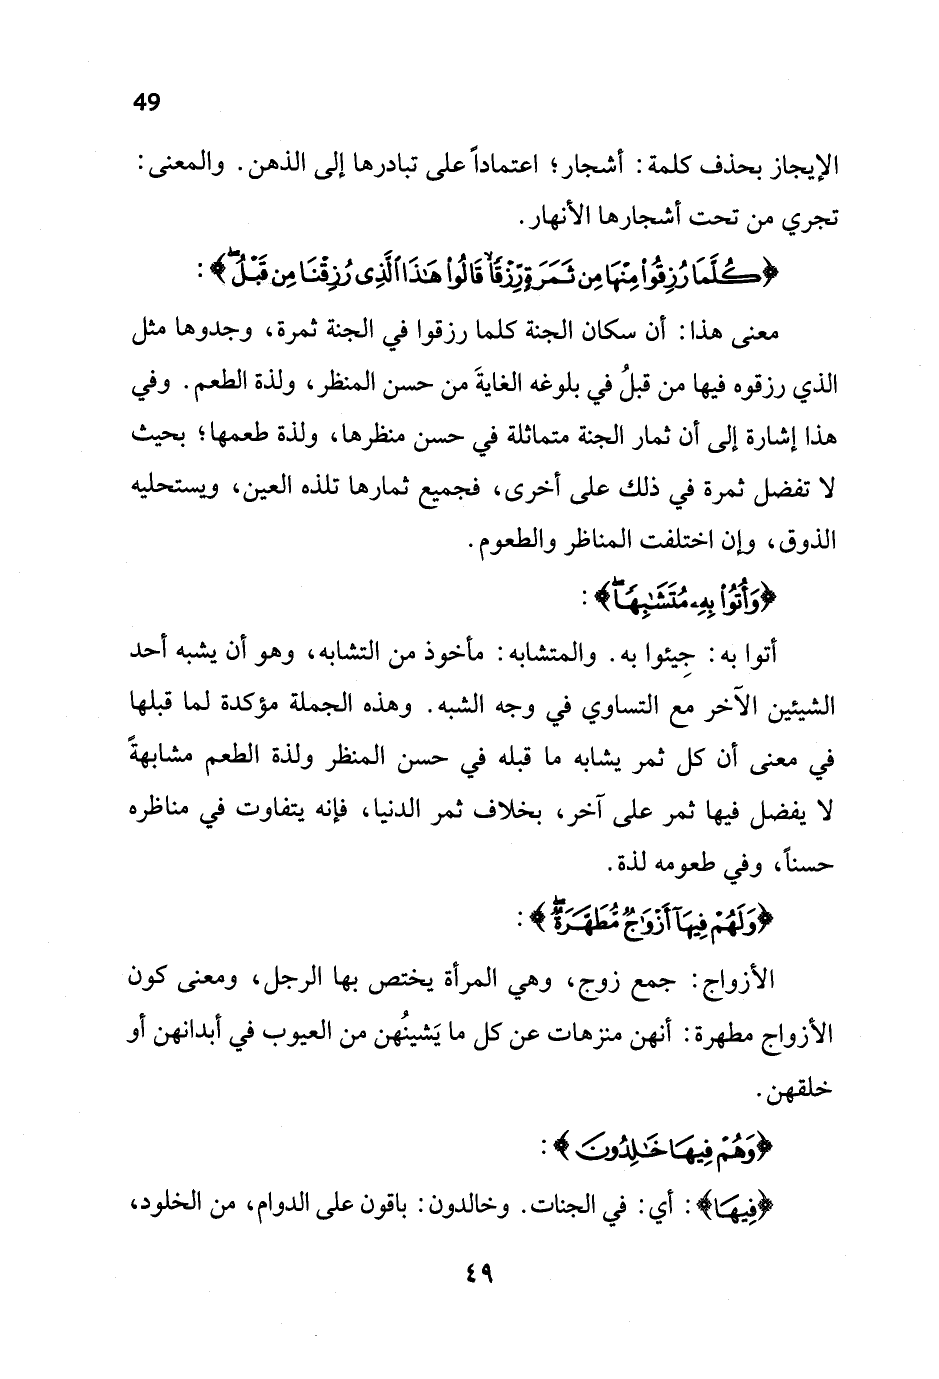 49
الإيجاز بحذف كلمة: أشجار؛ اعتماداً على تبادرها إلى الذهن. والمعنى:
تجري من تحت أشجارها الأنهار.
﴿كُلَّمَا رُزِقُوا۟ مِنْهَا مِن ثَمَرَةٍ رِّزْقًا ۙ قَالُوا۟ هَٰذَا ٱلَّذِى رُزِقْنَا مِن قَبْلُ ۖ﴾:
معنى هذا: أن سكان الجنة كلما رزقوا في الجنة ثمرة، وجدوها مثل
الذي رزقوه فيها من قبلُ في بلوغه الغايةَ من حسن المنظر، ولذة الطعم. وفي
هذا إشارة إلى أن ثمار الجنة متماثلة في حسن منظرها، ولذة طعمها؛ بحيث
لا تفضل ثمرة في ذلك على أخرى، فجميع ثمارها تلذه العين، ويستحليه
الذوق، وإن اختلفت المناظر والطعوم.
﴿وَأُتُوا۟ بِهِۦ مُتَشَٰبِهًا ۖ﴾:
أتوا به: جِيئوا به. والمتشابه: مأخوذ من التشابه، وهو أن يشبه أحد
الشيئين الآخر مع التساوي في وجه الشبه. وهذه الجملة مؤكدة لما قبلها
في معنى أن كل ثمر يشابه ما قبله في حسن المنظر ولذة الطعم مشابهةً
لا يفضل فيها ثمر على آخر، بخلاف ثمر الدنيا، فإنه يتفاوت في مناظره
حسناً، وفي طعومه لذة.
﴿وَلَهُمْ فِيهَآ أَزْوَٰجٌ مُّطَهَّرَةٌ ۖ﴾:
الأزواج: جمع زوج، وهي المرأة يختص بها الرجل، ومعنى كون
الأزواج مطهرة: أنهن منزهات عن كل ما يَشينُهن من العيوب في أبدانهن أو
خلقهن.
﴿وَهُمْ فِيهَا خَٰلِدُونَ﴾:
﴿فِيهَا﴾: أي: في الجنات. وخالدون: باقون على الدوام، من الخلود،
٤٩